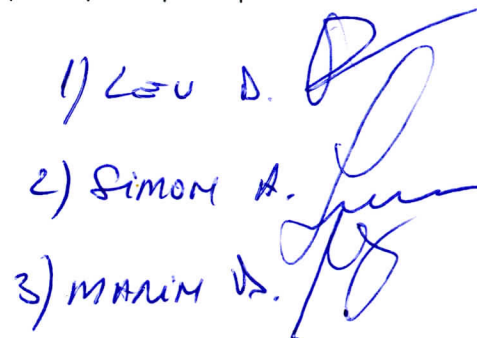 1) LEU D.
2) SIMON A.
3) MARIN